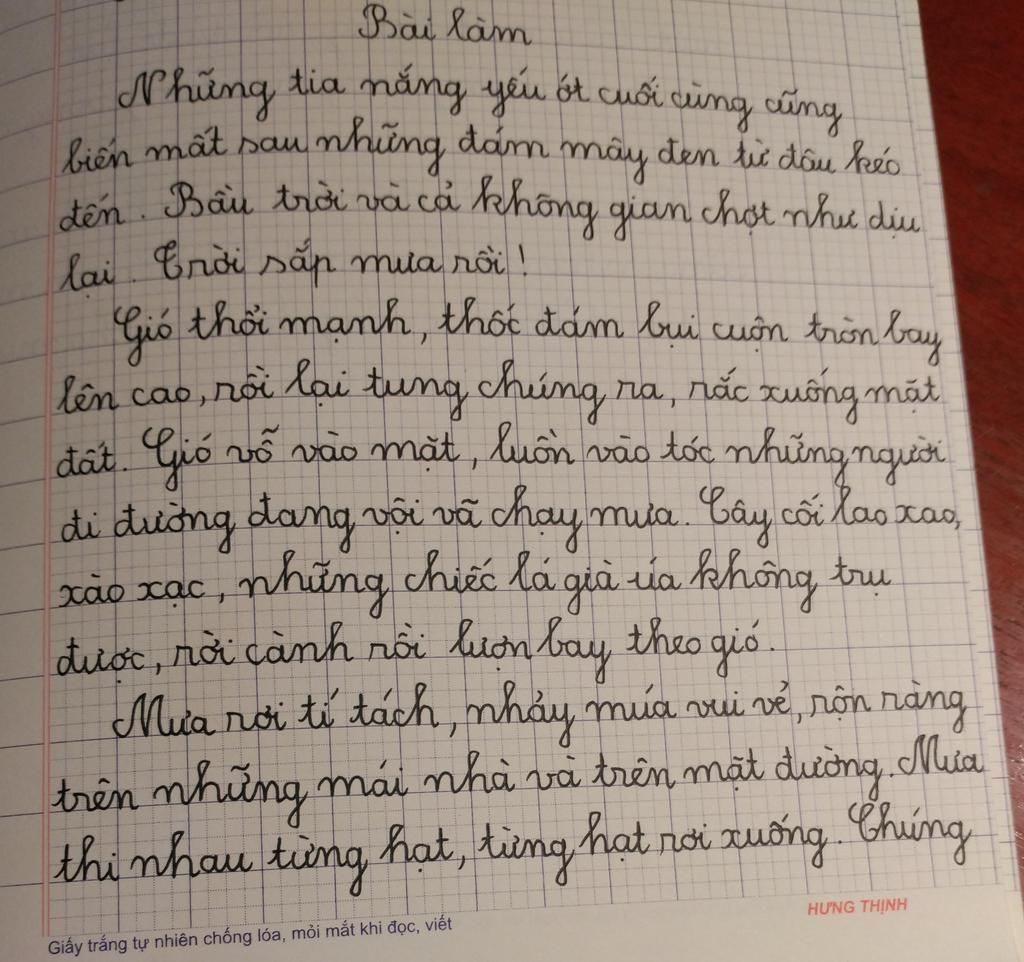 Bài làm
Những tia nắng yếu ớt cuối cùng cũng
biến mất sau những đám mây đen từ đâu kéo
đến. Bầu trời và cả không gian chợt như dịu
lại. Trời sắp mưa rồi!
Gió thổi mạnh, thốc đám bụi cuộn tròn bay
lên cao, rồi lại tung chúng ra, rắc xuống mặt
đất. Gió vỗ vào mặt, luồn vào tóc những người
đi đường đang vội vã chạy mưa. Cây cối lao xao,
xào xạc, những chiếc lá già úa không trụ
được, rời cành rồi lượn bay theo gió.
Mưa rơi tí tách, nhảy múa vui vẻ, rộn ràng
trên những mái nhà và trên mặt đường. Mưa
thi nhau từng hạt, từng hạt rơi xuống. Chúng
HƯNG THỊNH
Giấy trắng tự nhiên chống lóa, mỏi mắt khi đọc, viết